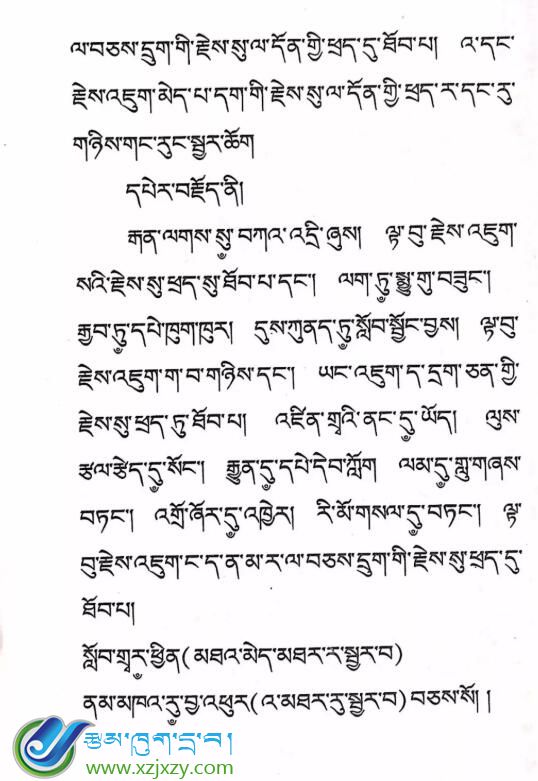 ལ་བཅས་དྲུག་གི་རྗེས་སུ་ལ་དོན་གྱི་ཕྲད་དུ་ཐོབ་པ། འ་དང་
རྗེས་འཇུག་མེད་པ་དག་གི་རྗེས་སུ་ལ་དོན་གྱི་ཕྲད་ར་དང་རུ་
གཉིས་གང་རུང་སྦྱར་ཆོག
དཔེར་བརྗོད་ནི།
རྒན་ལགས་སུ་བཀའ་འདྲི་ཞུས། ལྟ་བུ་རྗེས་འཇུག་
སའི་རྗེས་སུ་ཕྲད་སུ་ཐོབ་པ་དང་། ལག་ཏུ་སྨྱུ་གུ་བཟུང་།
རྒྱབ་ཏུ་དཔེ་ཁུག་ཁུར། དུས་ཀུནད་ཏུ་སློབ་སྦྱོང་བྱས། ལྟ་བུ་
རྗེས་འཇུག་ག་བ་གཉིས་དང་། ཡང་འཇུག་ད་དྲག་ཅན་གྱི་
རྗེས་སུ་ཕྲད་ཏུ་ཐོབ་པ། འཛིན་གྲྭའི་ནང་དུ་ཡོད། ལུས་
རྩལ་རྩེད་དུ་སོང་། རྒྱུན་དུ་དཔེ་དེབ་ཀློག ལམ་དུ་གླུ་གཞས་
བཏང་། འགྲོ་ཞོར་དུ་འཁྱེར། རི་མོ་གསལ་དུ་བཏང་། ལྟ་
བུ་རྗེས་འཇུག་ང་ད་ན་མ་ར་ལ་བཅས་དྲུག་གི་རྗེས་སུ་ཕྲད་དུ་
ཐོབ་པ།
སློབ་གྲྭར་ཕྱིན(མཐའ་མེད་མཐར་ར་སྦྱར་བ)
ནམ་མཁའ་རུ་བྱ་འཕུར(འ་མཐར་རུ་སྦྱར་བ)བཅས་སོ།།
རྩམ་ཁུག་དྲ་བ།
www.xzjxzy.com